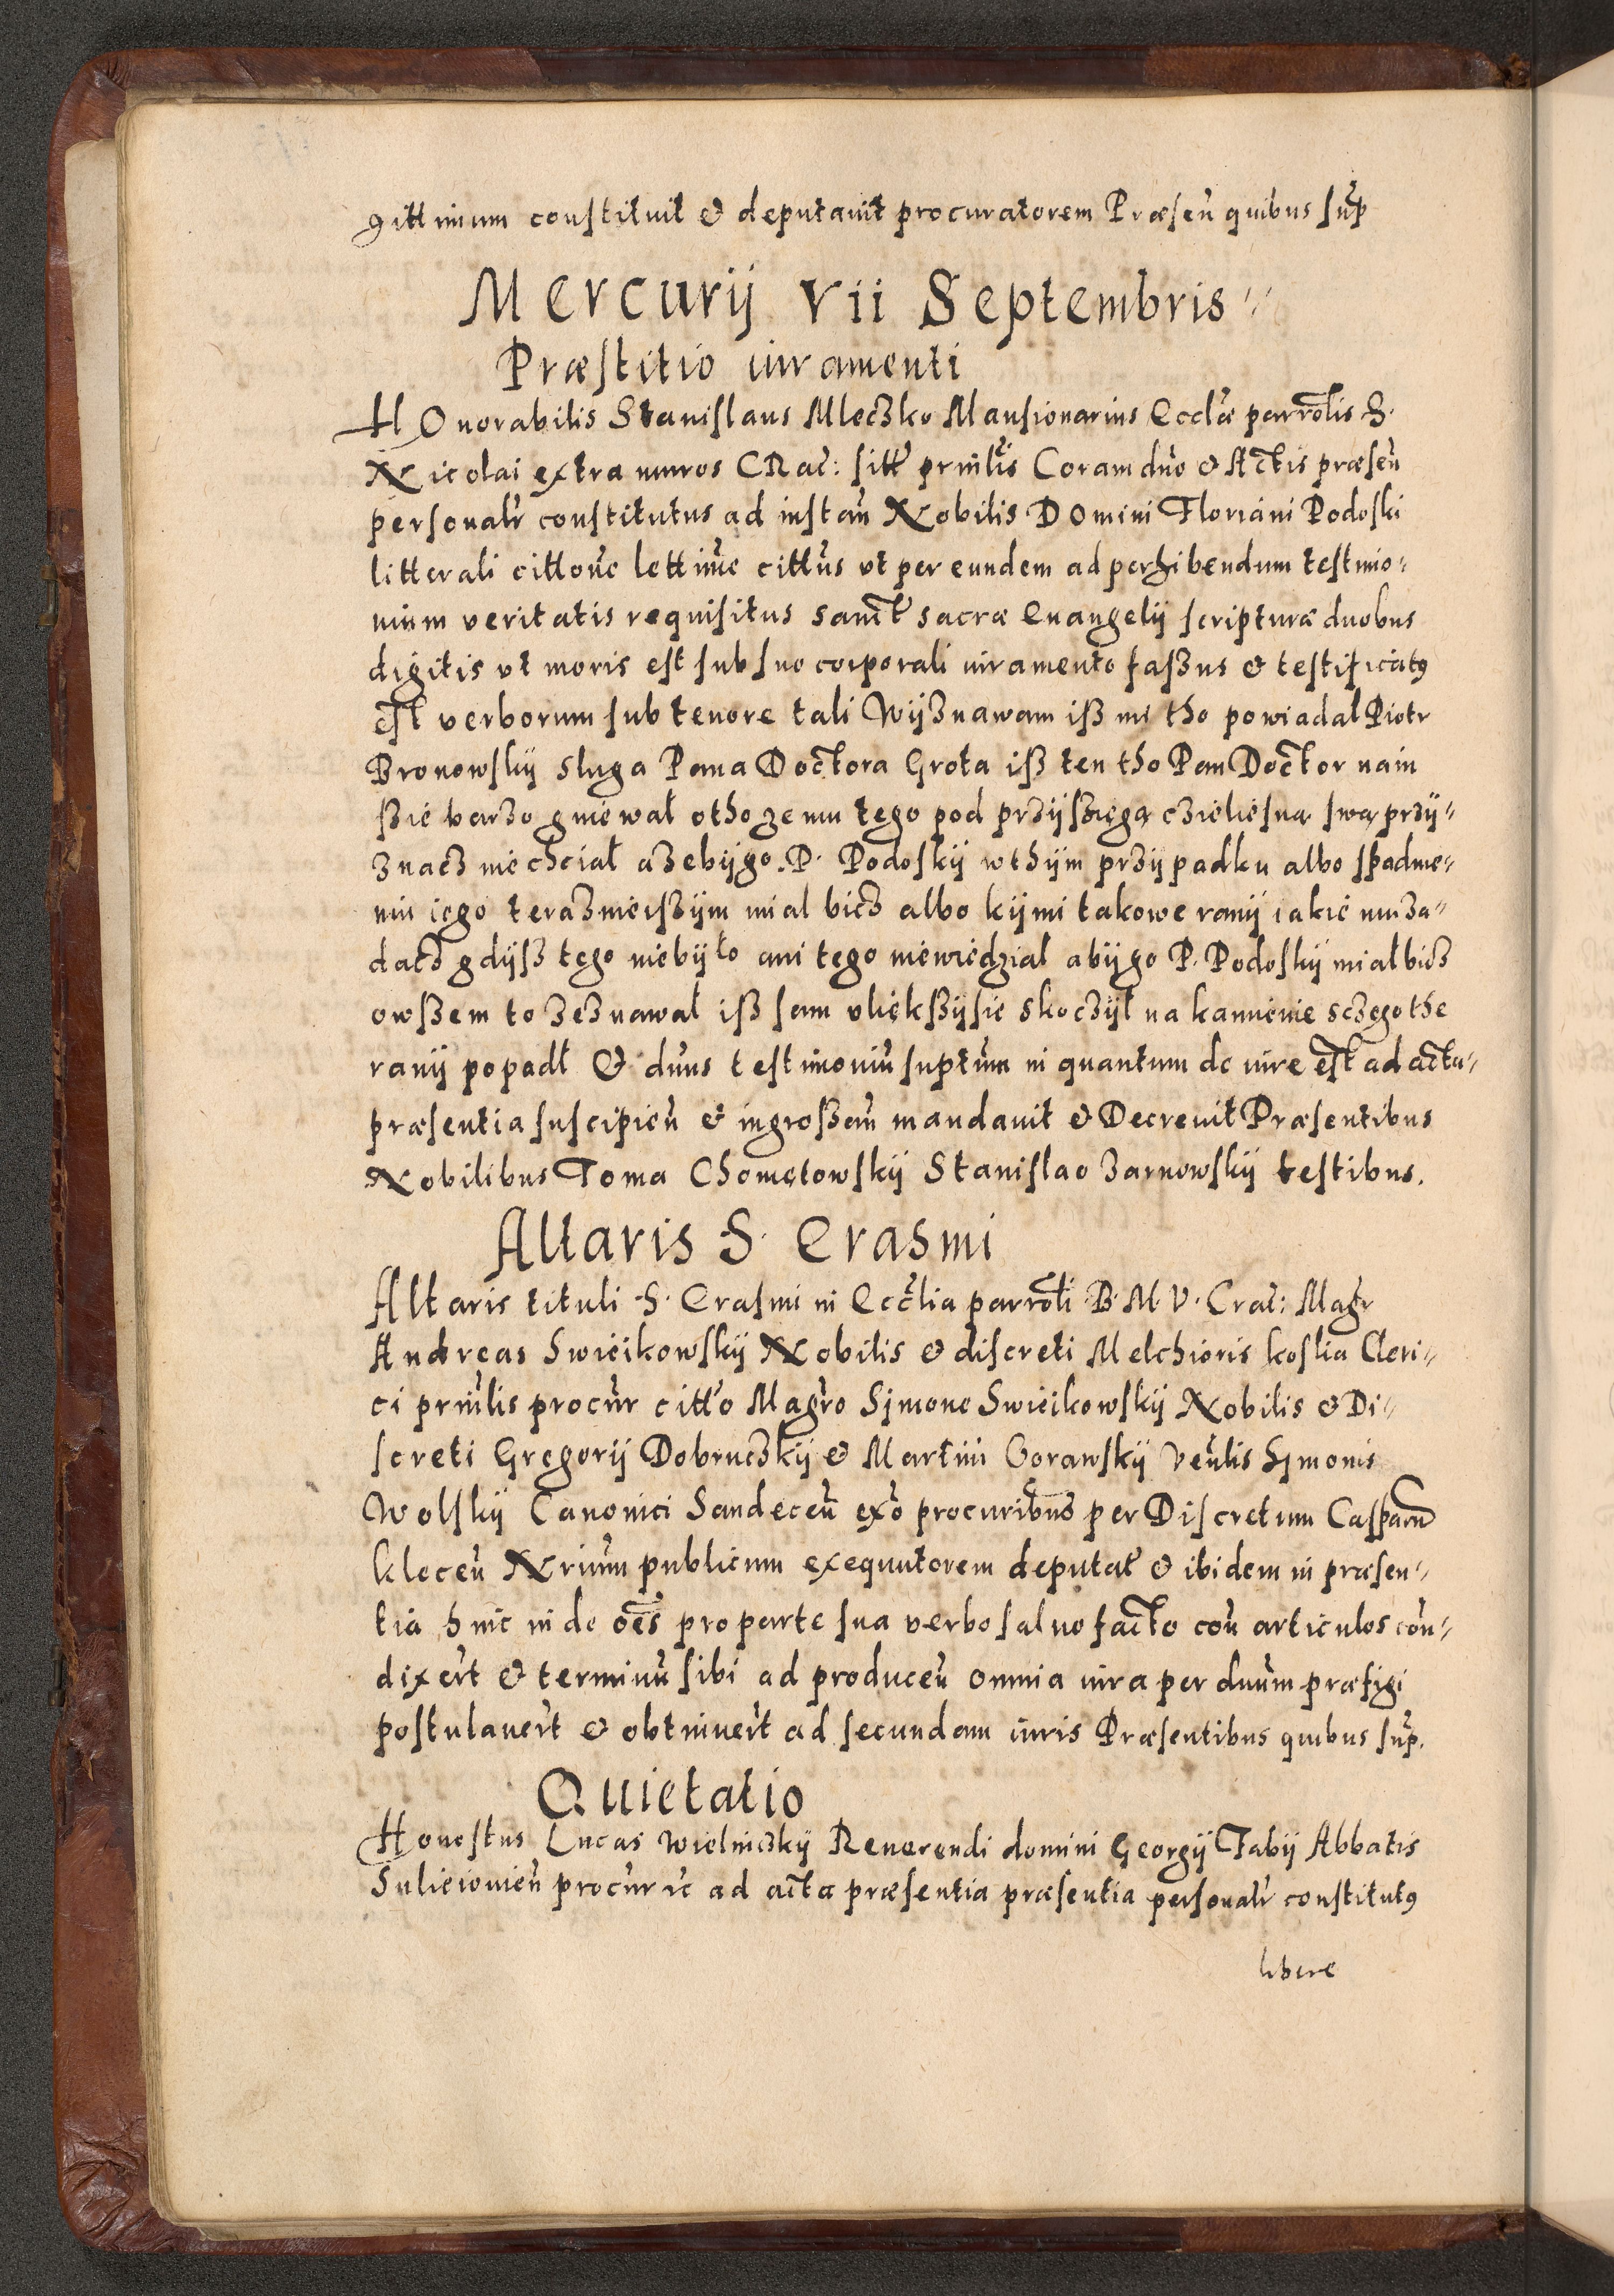 gittimum constituit & deputauit procuratorem Præsen̄ quibus sup̄
Mercurij vii Septembris
Præstitio iuramenti
HOnorabilis Stanislaus Mleczko Mansionarius Eccl̄æ parrōlis S.
Nicolai extra muros CRac̄: sitt̄ prīnlis Coram dn̄o & Actis præsen̄
personalr̄ constitutus ad instan̄ Nobilis DOmini Floriani Podoski
litterali cittōne lettim̄e citt̄us vt per eundem ad perhibendum testimo-
nium veritatis requisitus sanct̄ sacræ Euangelij scripturæ duobus
digitis vt moris est sub suo corporali iuramento faszus & testificatꝰ
est verborum sub tenore tali Wyznawam isz mi tho powiadal Piotr
Bronowskij sluga Pana Doctora Grota isz ten tho Pan Doctor nain
szie barzo gniewał otho ze mu tego pod przijszięgą czieliesną swą przij-
znacz niechciał azebijgo P. Podoskij wthijm przijpadku albo spadnie-
niu iego terazmieiszijm mial bicz albo kijmi takowe ranij iakie mu za-
dacz gdijsz tego niebijło ani tego niewiedzial abijgo P. Podoskij mial bicz
owszem to zeznawał isz sam vliększijsie skoczijł na kamienie sczego the
ranij popadł & dn̄us testimoniū sup̄tum in quantum de iure est ad acta
præsentia suscipien̄ & ingroszan̄ mandauit & Decreuit Præsentibus
Nobilibus Toma Chomętowskij Stanislao Zarnowskij testibus.
Altaris S. Erasmi
Altaris tituli S. Erasmi in Eccl̄lia parrōli B. M. V. Crac̄: Magr̄
Andreas Swieikowskij Nobilis & discreti Melchioris koslia Cleri-
ci prīnlis procūr citt̄o Magr̄o Sijmone Swieikowskij Nobilis & Di-
screti Gregorij Dobruczkij & Martini Gorawskij Ven̄lis Sijmonis
Wolskij Canonici Sandecen̄ ex̄o procuribus per Discretum Casparū
klecen̄ Nrium̄ publicum exequutorem deputat̄ & ibidem in præsen-
tia hinc inde oēs pro parte sua verbo saluo facto con̄ articulos con̄-
dixer̄t & terminū sibi ad producen̄ omnia iura per dn̄um præfigi
postulauer̄t & obtinuer̄t ad secundam iuris Præsentibus quibus sup̄.
Quietatio
Honestus Lucas wielniczkij Reuerendi domini Georgij Fabij Abbatis
Suliciouien̄ procūr ad acta præsentia præsentia personalr̄ constitutꝰ
libere